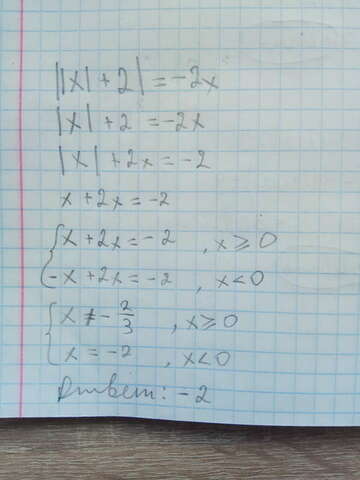 ||x| + 2| = -2x
|x| + 2 = -2x
|x| + 2x = -2
x + 2x = -2
{ x + 2x = -2 , x ≥ 0
-x + 2x = -2 , x < 0
{ x ≠ -2/3 , x ≥ 0
x = -2 , x < 0
Ответ: -2